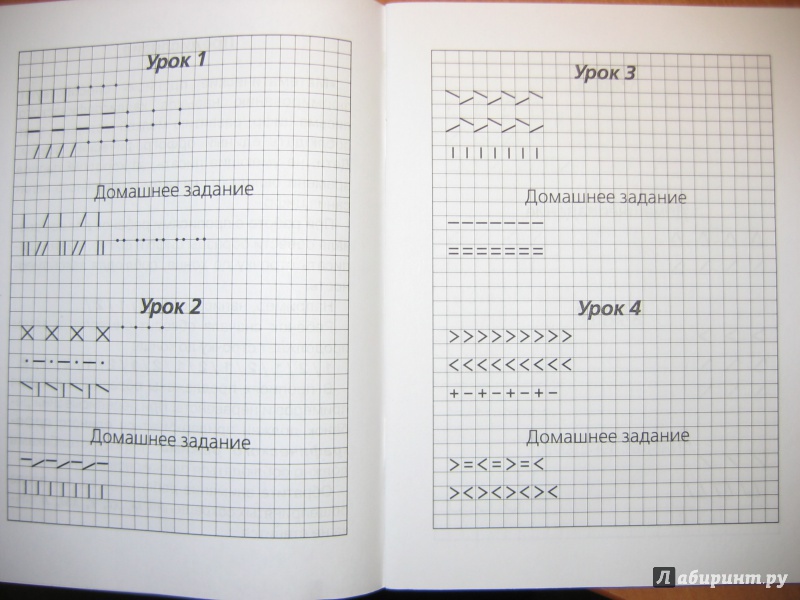 Урок 1
| | | | · · · ·
= = = = : : :
/ / / / · · · ·
Домашнее задание
| / | / |
|| // || // || ·· ·· ·· ·· ··
Урок 2
X X X X · · · ·
· – · – · – ·
\ | \ | \ | \
Домашнее задание
– / – / – / –
| | | | | | |
Урок 3
\ / \ / \ / \
/ \ / \ / \ /
| | | | | | |
Домашнее задание
– – – – – – –
= = = = = = =
Урок 4
> > > > > > > > >
< < < < < < < < <
+ – + – + – + –
Домашнее задание
> = < = > = <
> < > < > < > <
Лабиринт.ру